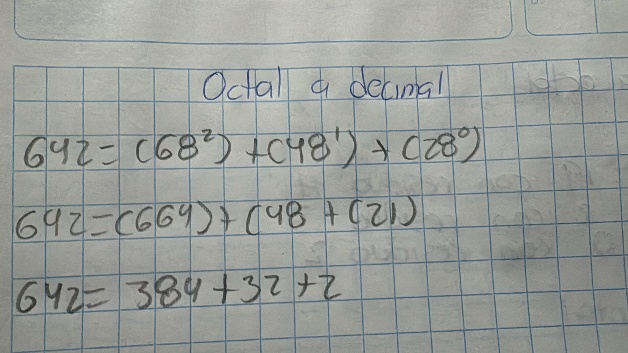 Octal a decimal
642=(68²)+(48¹)+(28⁰)
642=(664)+(48+(21)
642=384+32+2